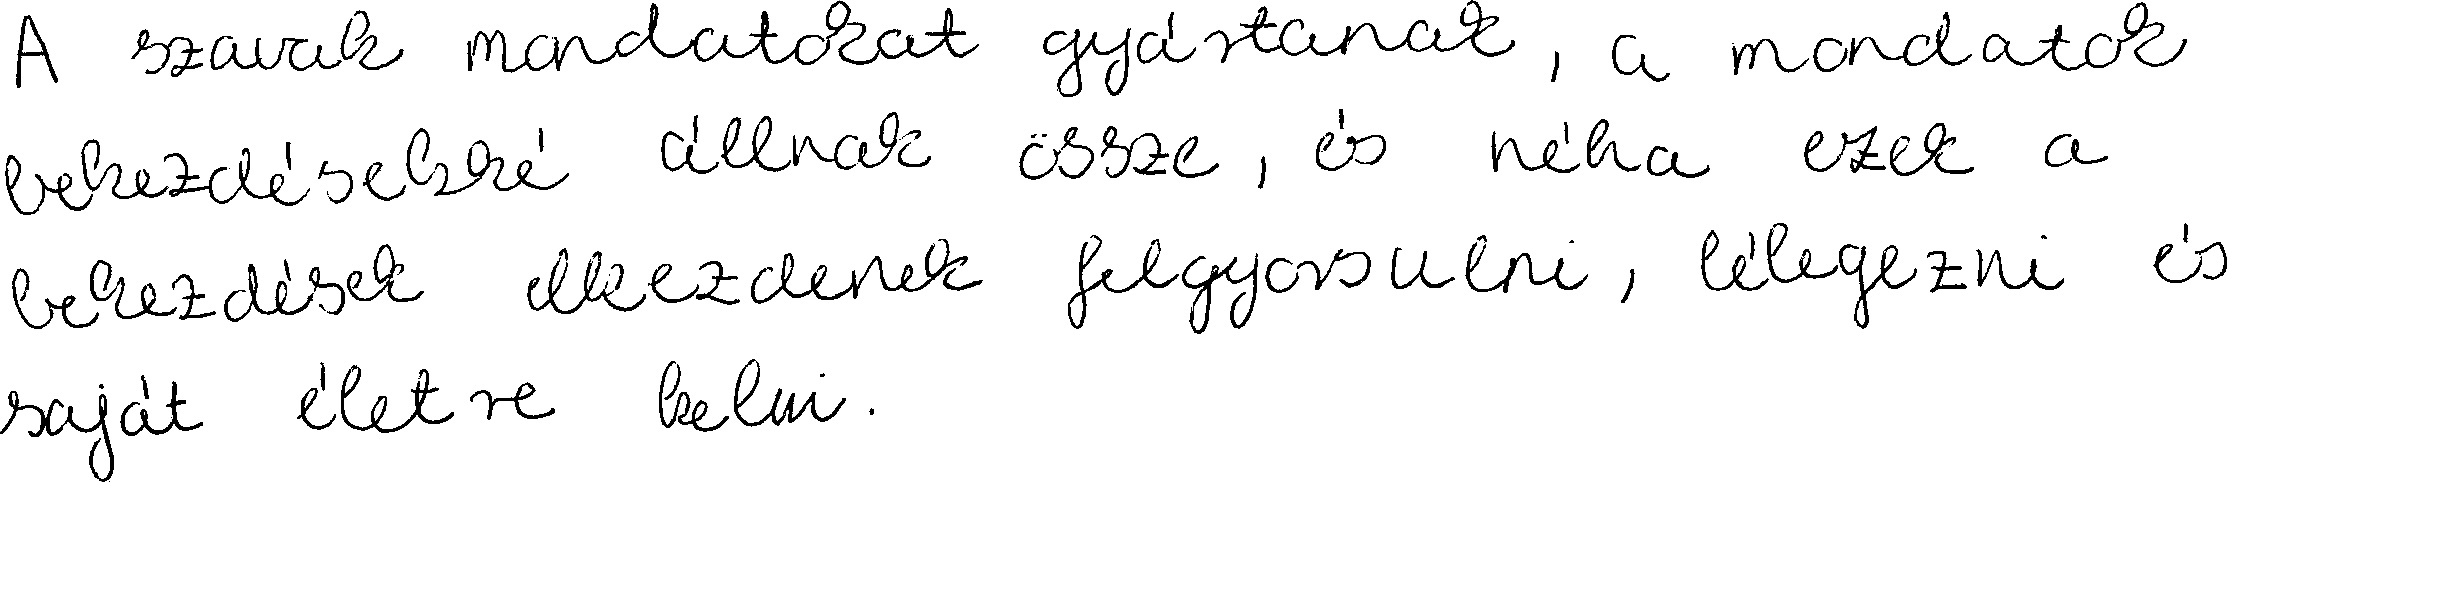 A szavak mondatokat gyártanak, a mondatok
bekezdésekké állnak össze, és néha ezek a
bekezdések elkezdenek felgyorsulni, lélegezni és
saját életre kelni.